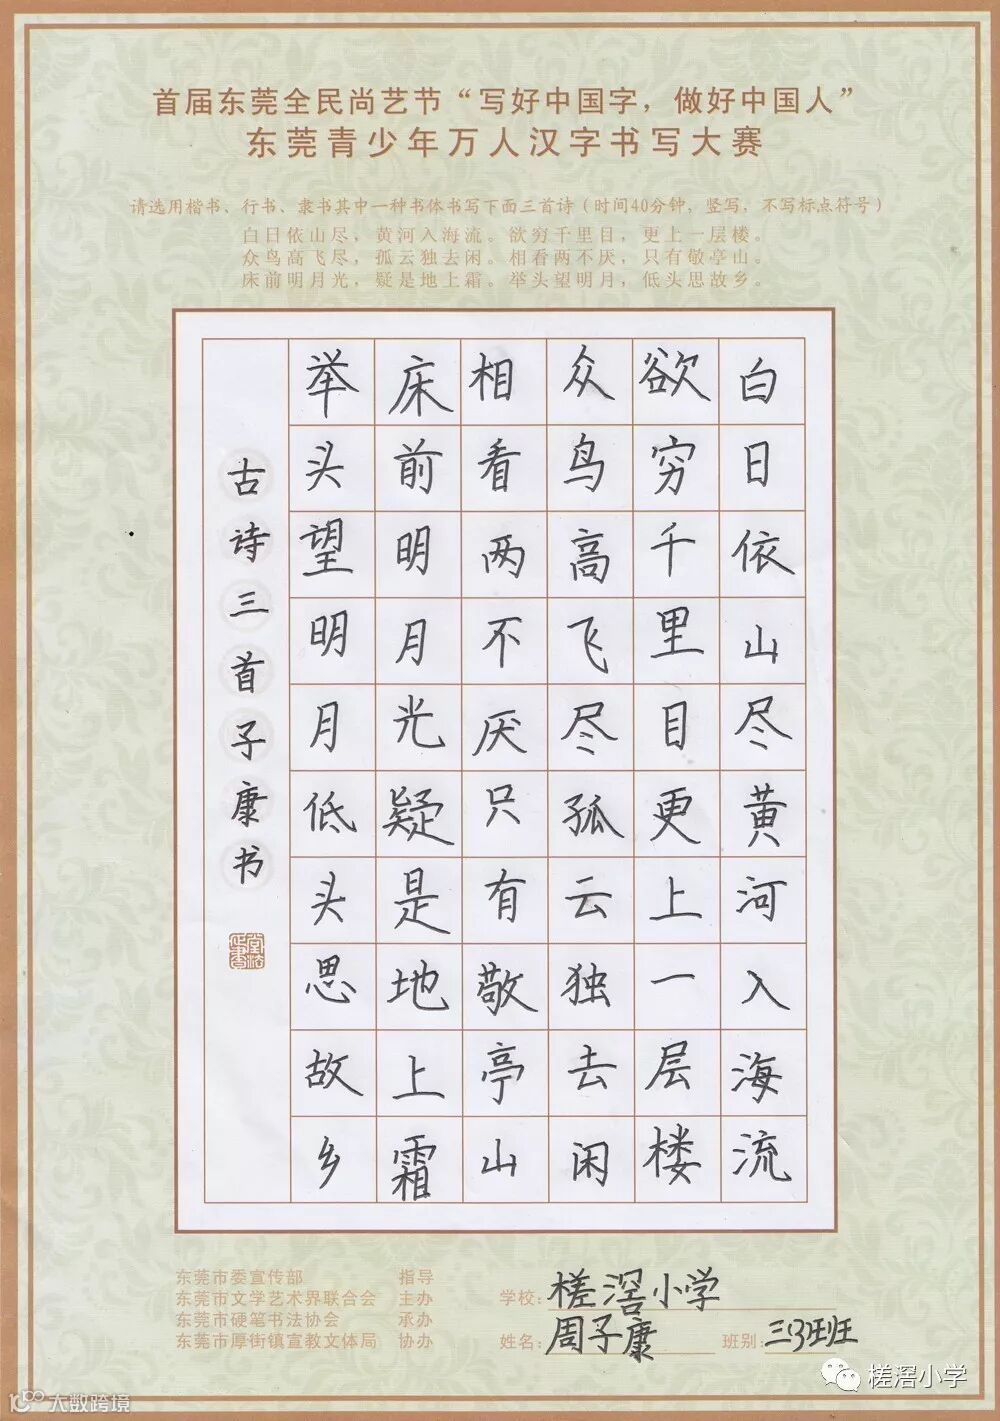 首届东莞全民尚艺节“写好中国字，做好中国人”
东莞青少年万人汉字书写大赛
请选用楷书、行书、隶书其中一种书体书写下面三首诗（时间40分钟，竖写，不写标点符号）
白日依山尽，黄河入海流。欲穷千里目，更上一层楼。
众鸟高飞尽，孤云独去闲。相看两不厌，只有敬亭山。
床前明月光，疑是地上霜。举头望明月，低头思故乡。
白日依山尽黄河入海流
欲穷千里目更上一层楼
众鸟高飞尽孤云独去闲
相看两不厌只有敬亭山
床前明月光疑是地上霜
举头望明月低头思故乡
古诗三首子康书
东莞市委宣传部 指导
东莞市文学艺术界联合会 主办
东莞市硬笔书法协会 承办
东莞市厚街镇宣教文体局 协办
学校：槎滘小学
姓名：周子康 班别：三(3)班
槎滘小学
大数跨境